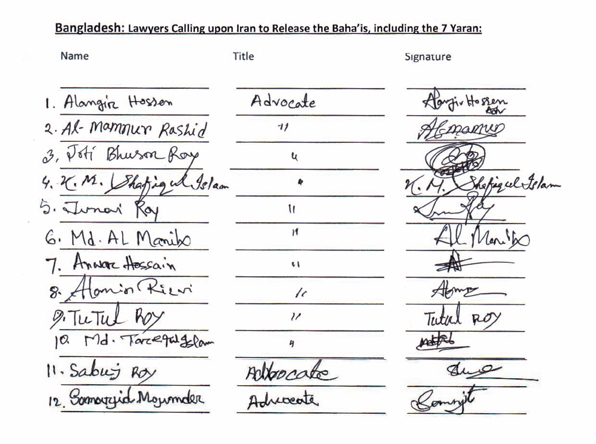 Bangladesh: Lawyers Calling upon Iran to Release the Baha'is, including the 7 Yaran:
Name Title Signature
1. Alangir Hossen Advocate Alangir Hossen
2. Al-Mamnur Rashid " Almamun
3. Joti Bhuson Roy "
4. K. M. Shafiqul Islam " K. M. Shafiqul Islam
5. Roy "
6. Md. AL Manibo " Al Manibo
7. Anwar Hossain "
8. Alamin Rizvi "
9. TUTUL ROY " Tutul ROY
10. Md. Islam "
11. Sabuj Roy Adbocate
12. Mojumder Advocate